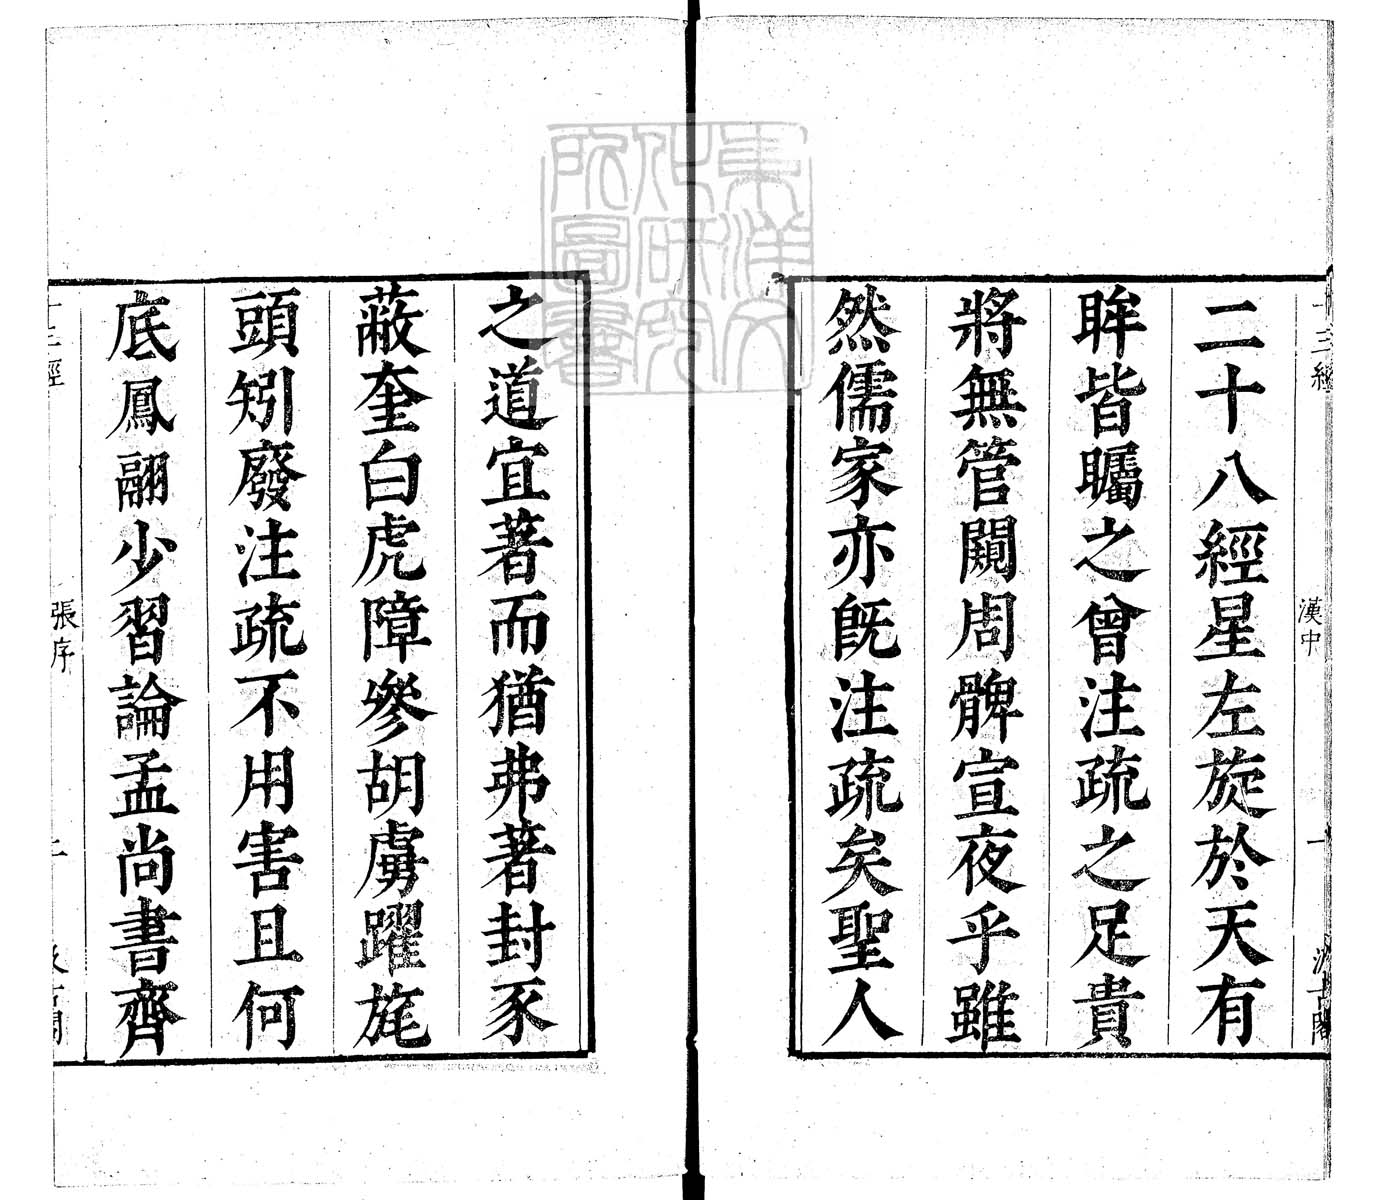 十三經
漢中
一
汲古閣
二十八經星左旋於天有
眸皆矚之曾注疏之足貴
將無管闚周髀宣夜乎雖
然儒家亦旣注疏矣聖人
之道宜著而猶弗著封豕
蔽奎白虎障參胡虜躍旄
頭矧廢注疏不用害且何
底鳳翮少習論孟尚書齊
十三經
張序
二
汲古閣
東洋文
化研究
所圖書